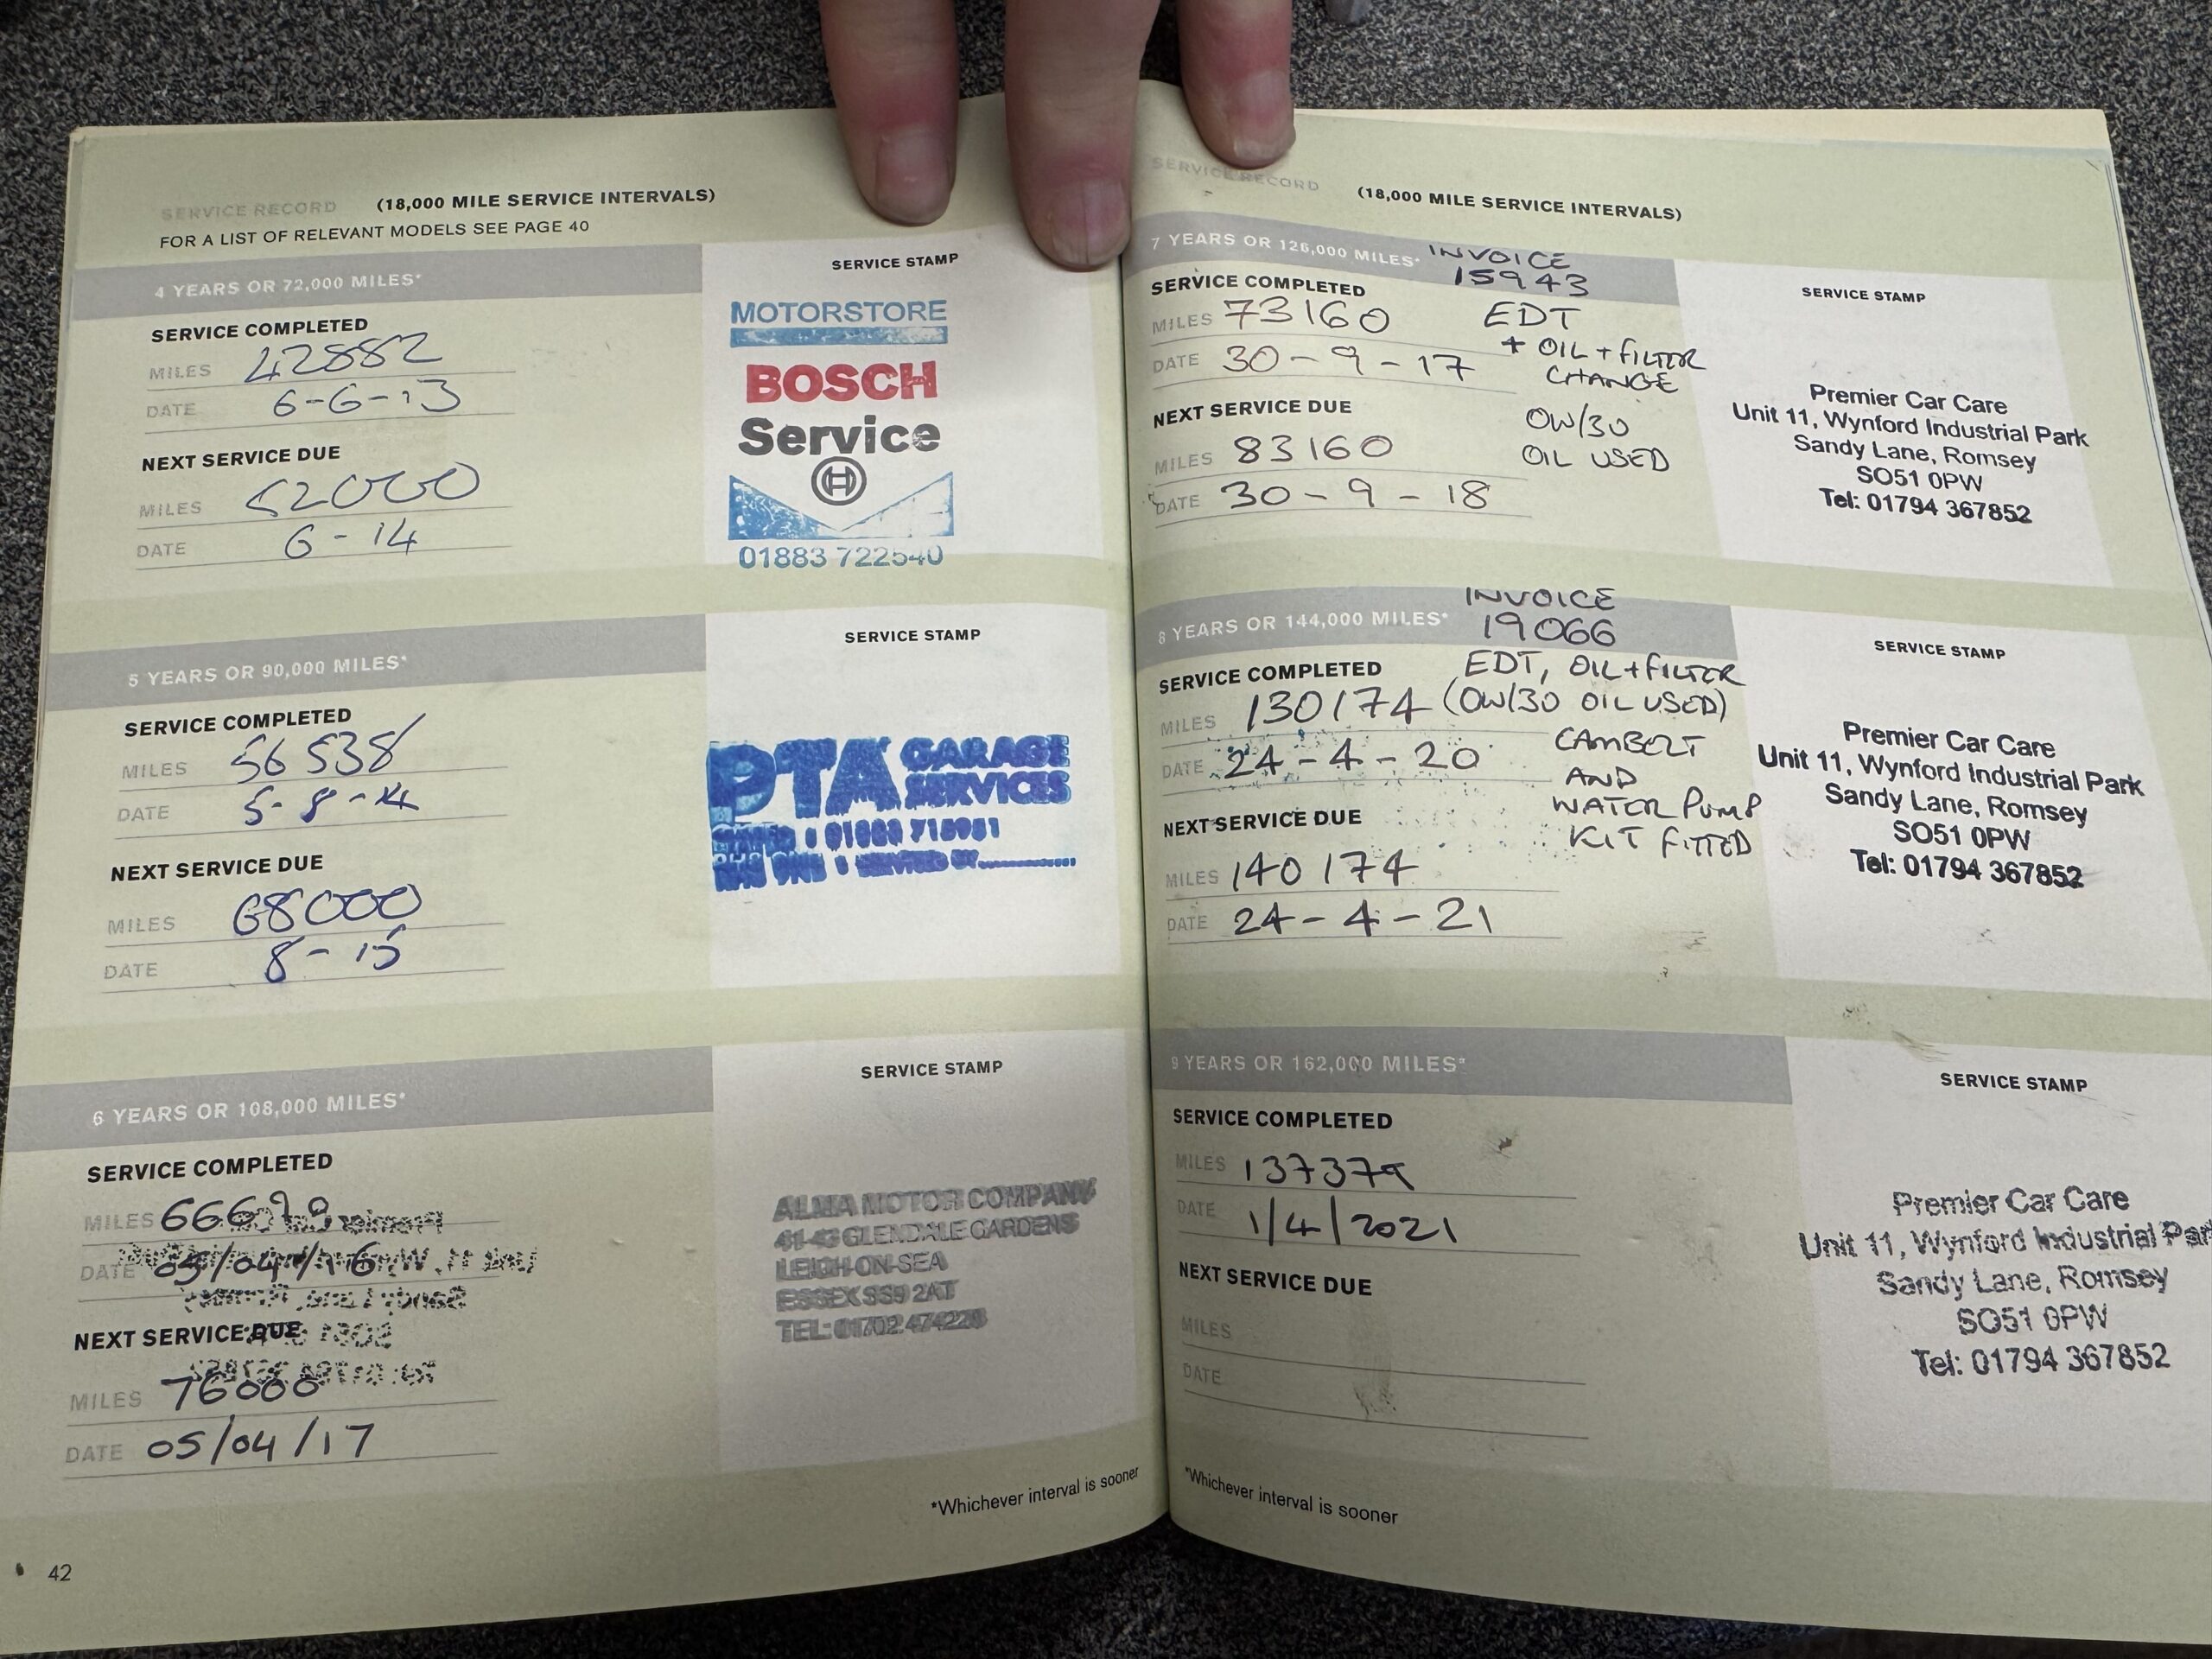 SERVICE RECORD (18,000 MILE SERVICE INTERVALS)
FOR A LIST OF RELEVANT MODELS SEE PAGE 40
4 YEARS OR 72,000 MILES*
SERVICE COMPLETED
MILES 42882
DATE 6-6-13
NEXT SERVICE DUE
MILES 52000
DATE 6-14
SERVICE STAMP
MOTORSTORE
BOSCH
Service
01883 722540
5 YEARS OR 90,000 MILES*
SERVICE COMPLETED
MILES 56538
DATE 5-8-14
NEXT SERVICE DUE
MILES 68000
DATE 8-15
SERVICE STAMP
PTA GARAGE
SERVICES
6 YEARS OR 108,000 MILES*
SERVICE COMPLETED
MILES
DATE 05/04/16
NEXT SERVICE DUE
MILES 76000
DATE 05/04/17
SERVICE STAMP
ALMA MOTOR COMPANY
41-43 GLENDALE GARDENS
LEIGH-ON-SEA
ESSEX SS9 2AT
TEL: 01702 474228
*Whichever interval is sooner
42
SERVICE RECORD (18,000 MILE SERVICE INTERVALS)
7 YEARS OR 126,000 MILES* INVOICE
15943
SERVICE COMPLETED
MILES 73160 EDT
+ OIL + FILTER
CHANGE
DATE 30-9-17
NEXT SERVICE DUE
0W/30
OIL USED
MILES 83160
DATE 30-9-18
SERVICE STAMP
Premier Car Care
Unit 11, Wynford Industrial Park
Sandy Lane, Romsey
SO51 0PW
Tel: 01794 367852
INVOICE
8 YEARS OR 144,000 MILES* 19066
SERVICE COMPLETED EDT, OIL + FILTER
MILES 130174 (0W/30 OIL USED)
DATE 24-4-20
CAMBELT
AND
WATER PUMP
KIT FITTED
NEXT SERVICE DUE
MILES 140174
DATE 24-4-21
SERVICE STAMP
Premier Car Care
Unit 11, Wynford Industrial Park
Sandy Lane, Romsey
SO51 0PW
Tel: 01794 367852
9 YEARS OR 162,000 MILES*
SERVICE COMPLETED
MILES 137379
DATE 1/4/2021
NEXT SERVICE DUE
MILES
DATE
SERVICE STAMP
Premier Car Care
Unit 11, Wynford Industrial Par
Sandy Lane, Romsey
SO51 0PW
Tel: 01794 367852
*Whichever interval is sooner